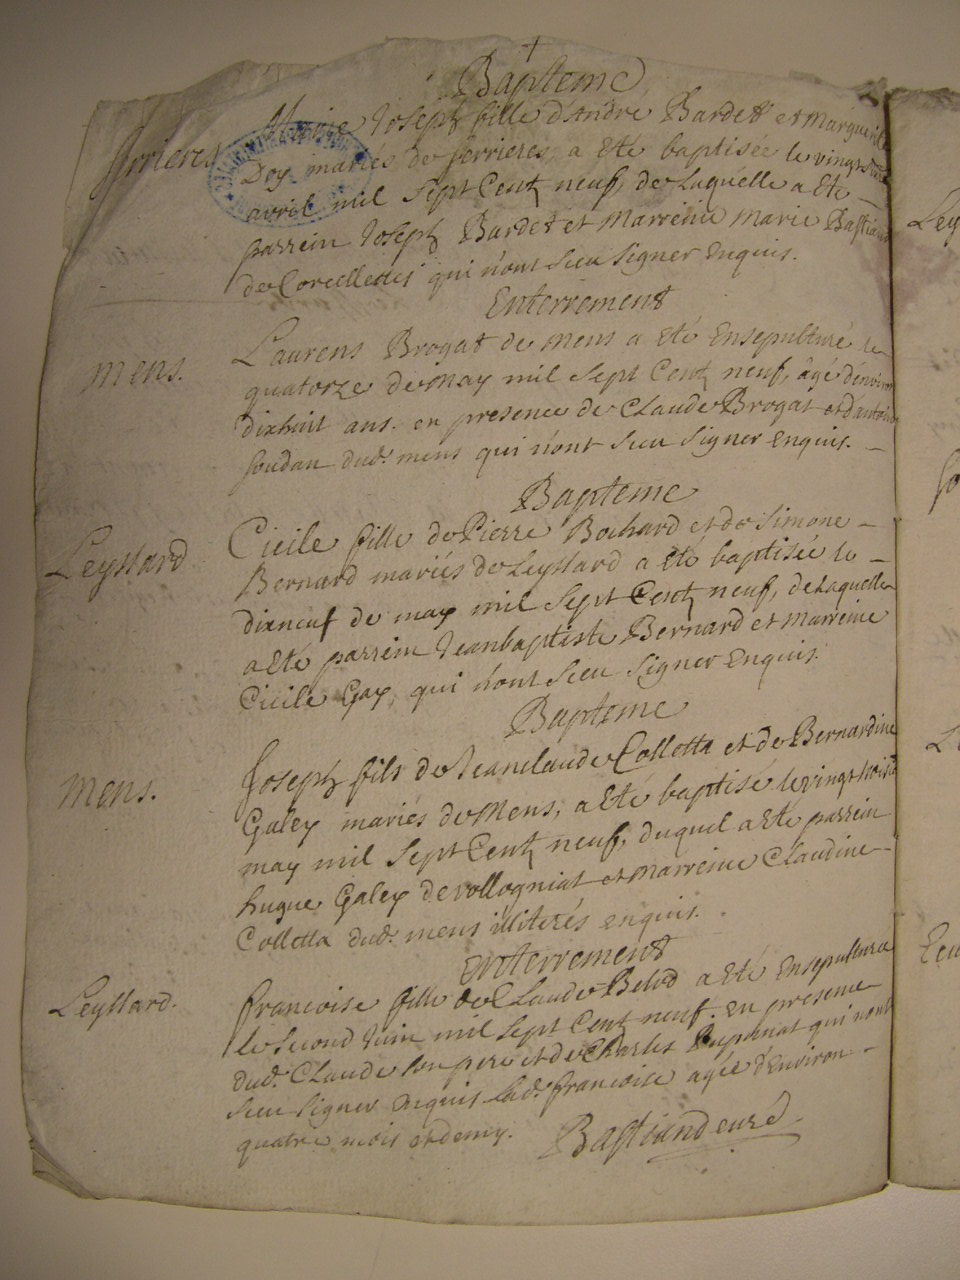 Bapteme
ferrieres
Marie Joseph fille d'Andre Bardet et Marguerite
Dey mariés de ferrieres a Eté baptisée le vingt
avril mil Sept Cent neuf, de Laquelle a Eté
parrein Joseph Bardet et Marreine Marie Bastiand
de Corcellettes qui n'ont Sceu Signer Enquis.
Enterrement
mens.
Laurens Brogat de Mens a Eté Ensepulturé le
quatorze de May mil Sept Cent neuf, âgé d'environ
dixhuit ans. en presence de Claude Brogat et d'antoine
Goudan dud. mens qui n'ont Sceu Signer Enquis.
Bapteme
Leyssard
Cicile fille de Pierre Bochard et de Simone
Bernard mariés de Leyssard a Eté baptisée le
dixneuf de may mil Sept Cent neuf, de Laquelle
a Eté parrein Jeanbaptiste Bernard et marreine
Cicile Gay, qui n'ont Sceu Signer Enquis.
Bapteme
mens.
Joseph fils de Jeanclaude Colletta et de Bernardine
Galey mariés de Mens, a Eté baptisé le vingt trois
may mil Sept Cent neuf, duquel a Eté parrein
hugue Galey de vollogniat et Marreine Claudine
Colletta dud. mens illiterés enquis.
Enterrement
Leyssard.
francoise fille de Claude Belod a Eté Ensepulturée
le Second Juin mil Sept Cent neuf. En presence
dud. Claude son pere et de Charles qui n'ont
Sceu Signer Enquis Lad. francoise agée d'Environ
quatre mois et demy.
Bastiand curé
Ley